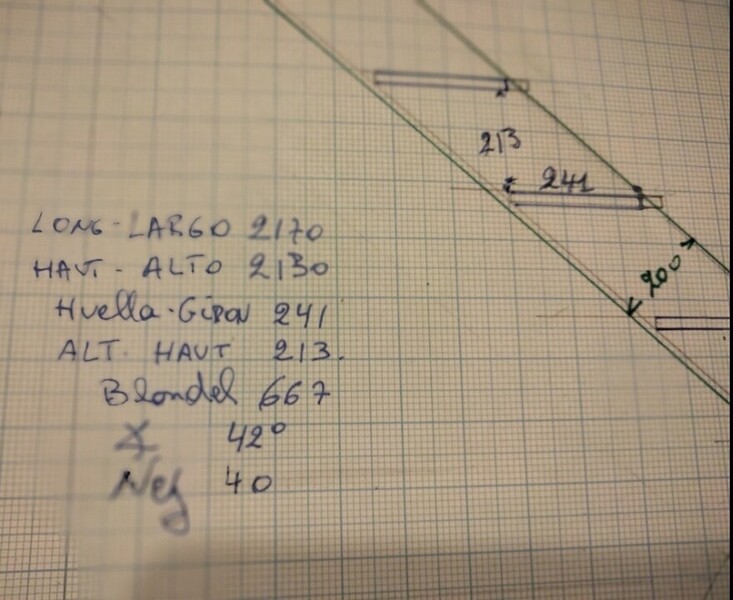 213
241
200
LONG-LARGO 2170
HAUT-ALTO 2130
Huella-Giron 241
ALT. HAUT 213.
Blondel 667
∡ 42°
Nez 40